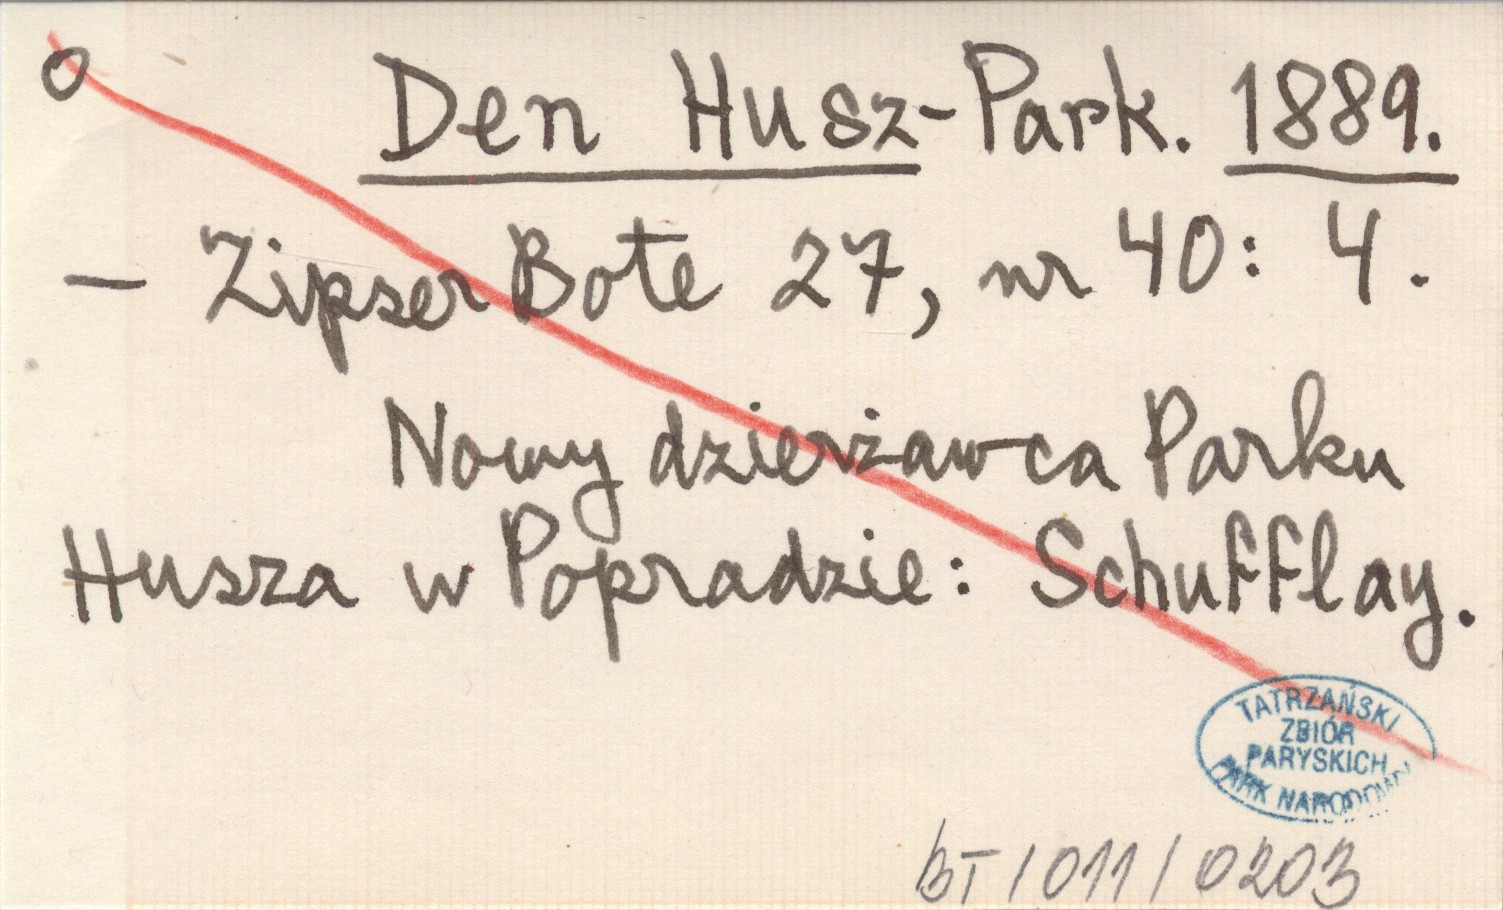 o Den Husz-Park. 1889.
— Zipser Bote 27, nr 40: 4.
Nowy dzierżawca Parku
Husza w Popradzie: Schufflay.
TATRZAŃSKI
ZBIÓR
PARYSKICH
PARK NARODOWY
BT/011/0203